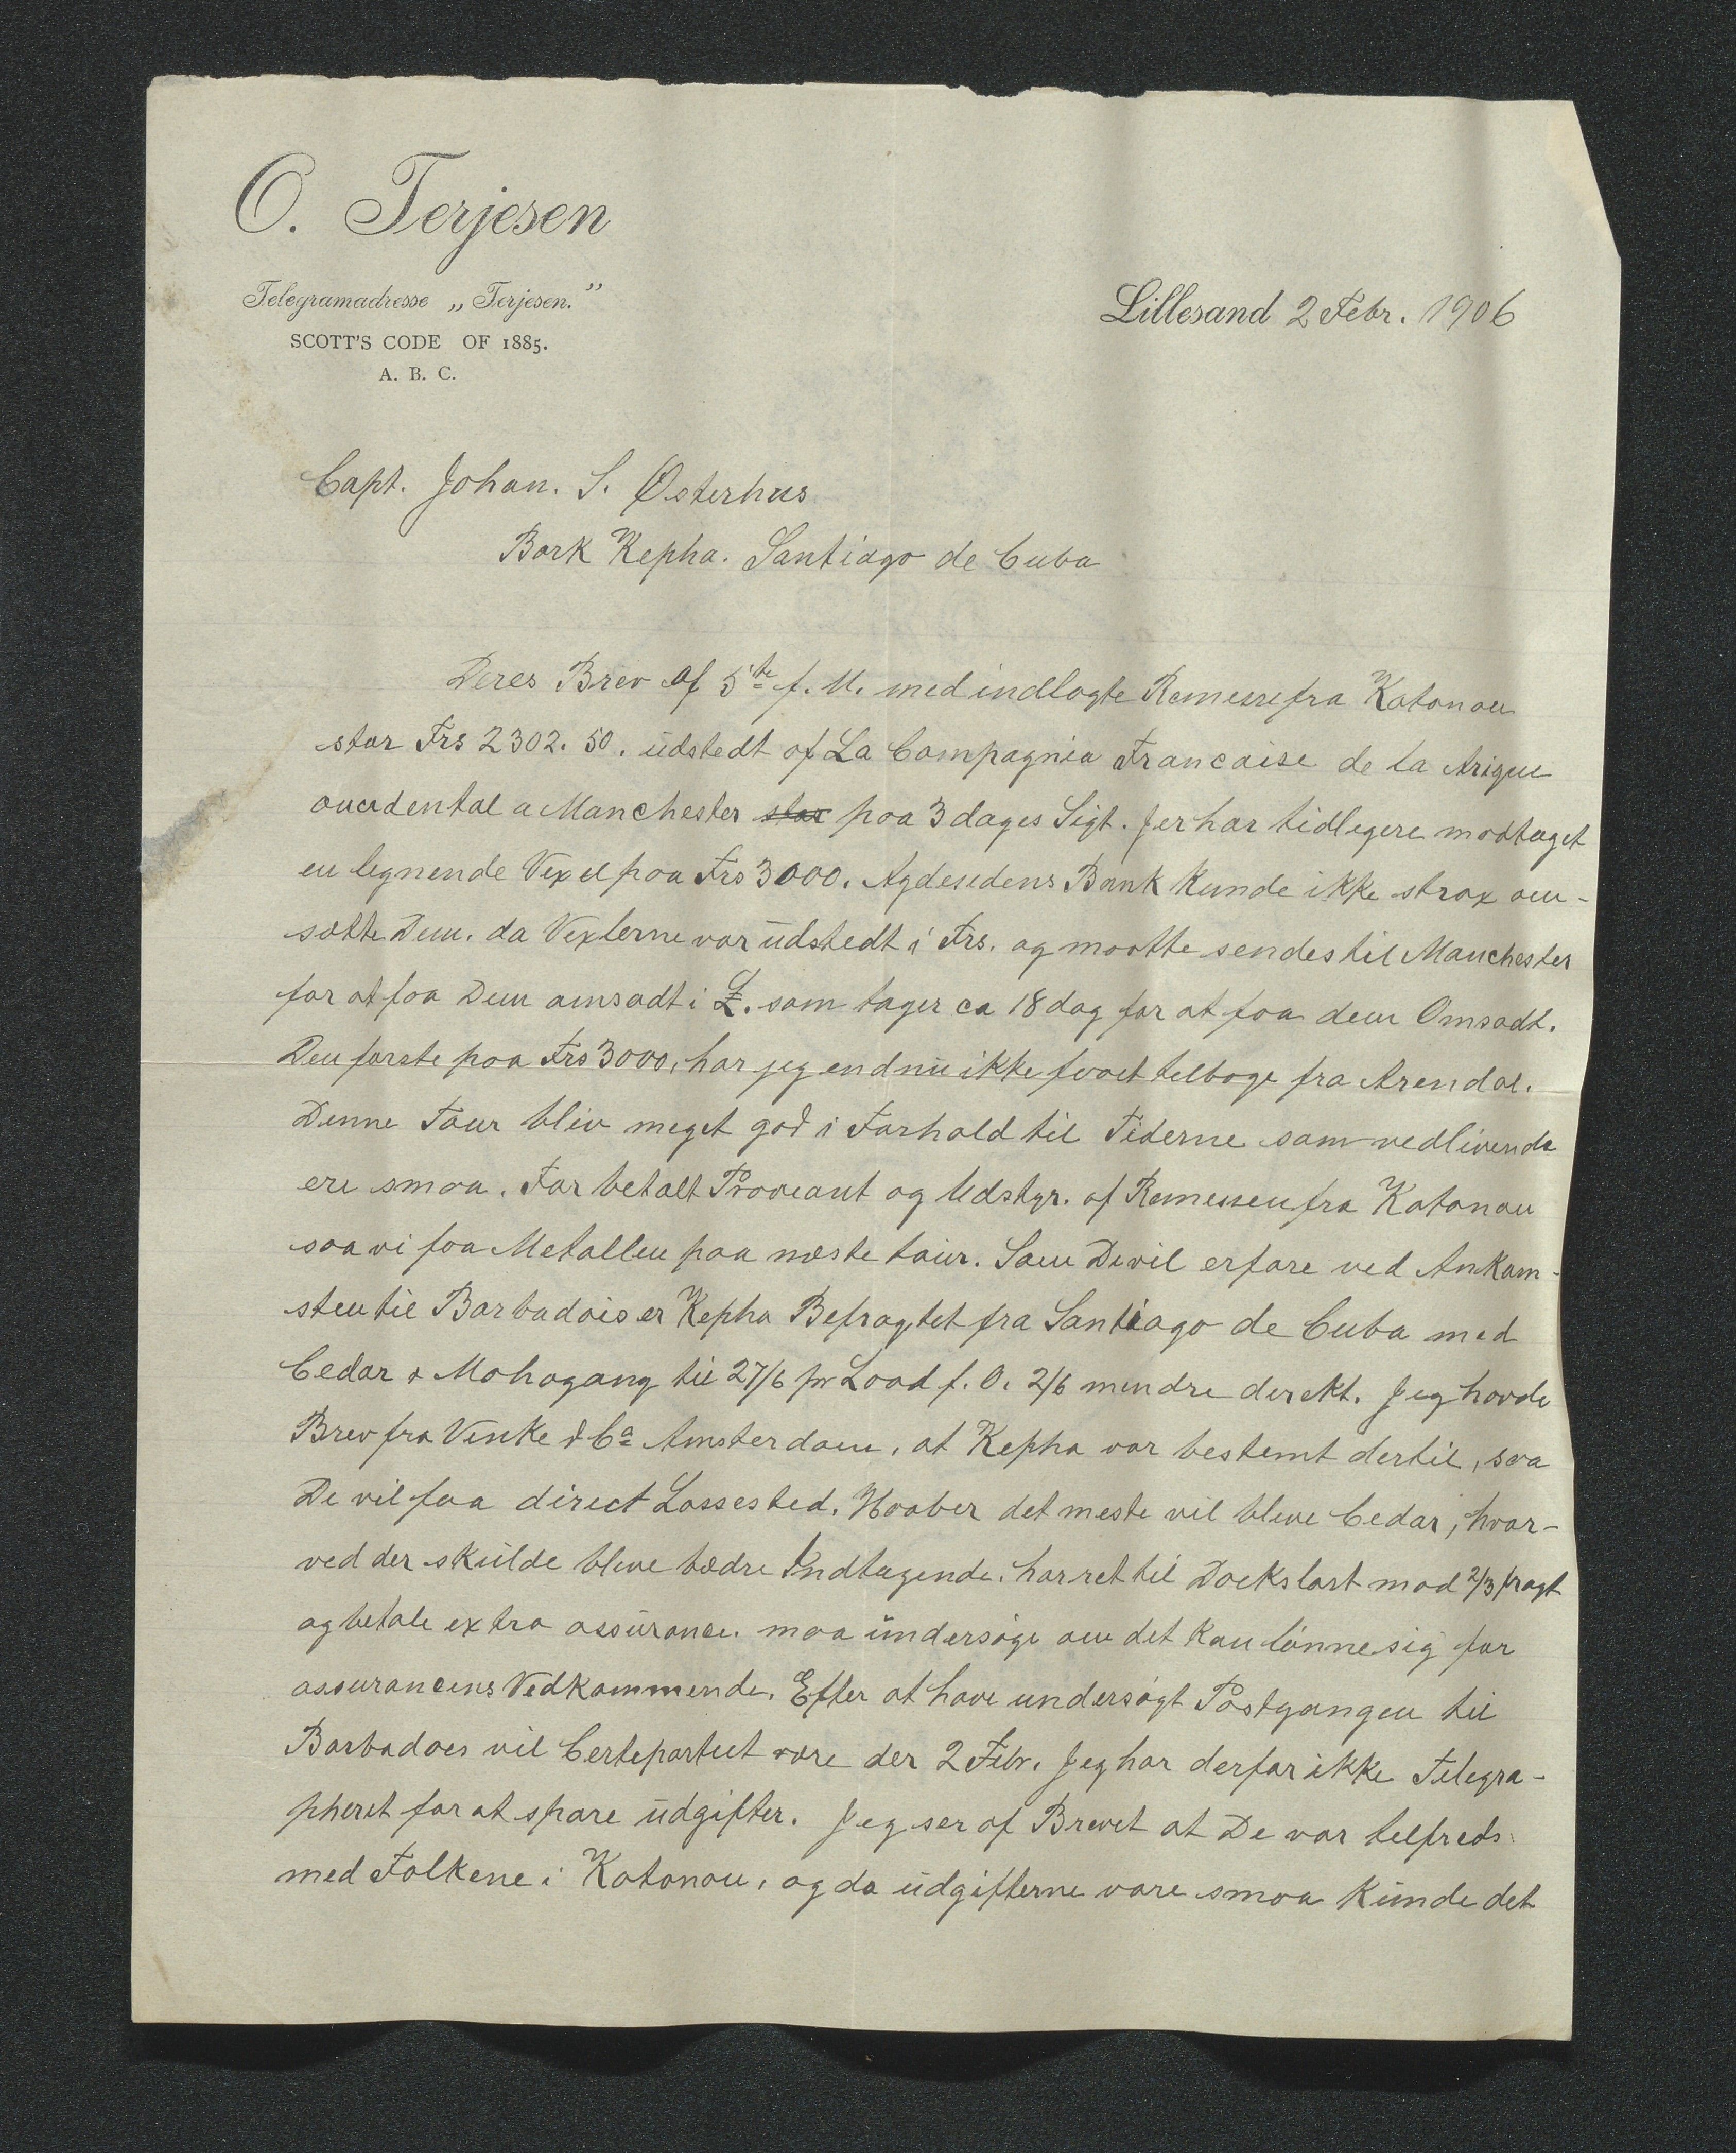 O. Terjesen
Telegramadresse „Terjesen.”
SCOTT'S CODE OF 1885.
A. B. C.
Lillesand 2 Febr. 1906
Capt. Johan. S. Østerhus
Bark Kepha. Santiago de Cuba
Deres Brev af 5te f. M. med indlagte Remesse fra Katonou
stor Frs 2302. 50. udstedt af La Compagnia Francaise de la
a Manchester stor paa 3 dages Sigt. Jer har tidligere modtaget
en lignende Vexel paa Frs 3000. Agdesidens Bank kunde ikke strax om-
sætte Dem. da Vexlerne var udstedt i Frs. og maatte sendes til Manchester
for at faa Dem omsadt i £. som tager ca 18 dag for at faa dem Omsadt.
Den første paa Frs 3000. har jeg endnu ikke faaet tilbage fra Arendal.
Denne Tour bliv meget god i Forhold til Tiderne som vedlivende
ere smaa. Far betalt Proveant og Udstyr. af Remessen fra Katonou
saa vi faa Metallen paa næste tour. Som De vil erfare ved Ankom-
sten til Barbadois er Kepha Befragtet fra Santiago de Cuba med
Cedar & Mohogang til 27/6 pr Load f. O. 2/6 mindre direkt. Jeg havde
Brev fra Vinke & Co Amsterdam, at Kepha var bestemt dertil, saa
De vil faa direct Lossested. Haaber det meste vil blive Cedar, hvor-
ved der skulde blive bedre Indtagende. har ret til Dækslast mod 2/3 fragt
og betale extra assurance. maa undersøge om det kan lønne sig for
assurancens Vedkommende. Efter at have undersøgt Postgangen til
Barbadoes vil Certepartiet være der 2 Febr. Jeg har derfor ikke Telegra-
pheret for at spare udgifter. Jeg ser af Brevet at De var tilfreds
med Folkene i Katonou, og da udgifterne vare smaa kunde det